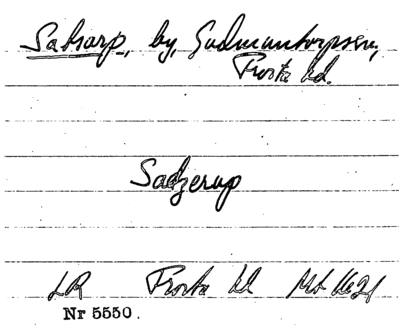 Satsarp, by, Gudmuntorpssn,
Frosta hd.
Sadzerup
LR Frosta hd
Nr 5550.